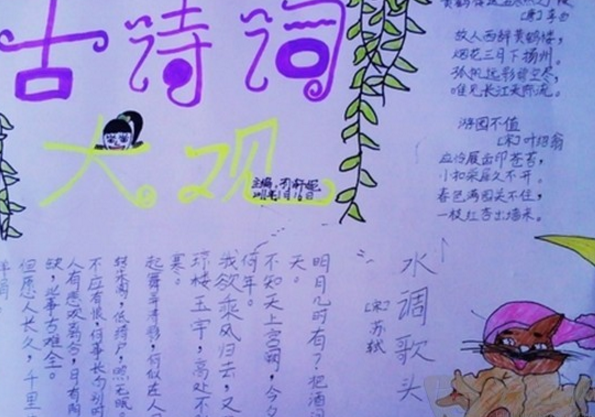 古诗词
大观
主编：
[唐]李白
故人西辞黄鹤楼，
烟花三月下扬州。
孤帆远影碧空尽，
唯见长江天际流。
游园不值
[宋]叶绍翁
应怜屐齿印苍苔，
小扣柴扉久不开。
春色满园关不住，
一枝红杏出墙来。
水调歌头
[宋]苏轼
明月几时有？把酒问
天。
不知天上宫阙，今夕
何年。
我欲乘风归去，又
琼楼玉宇，高处不
寒。
起舞弄清影，何似在人
转朱阁，低绮户，照无眠
不应有恨，何事长向别时
人有悲欢离合，月有阴
缺，此事古难全。
但愿人长久，千里
婵娟。